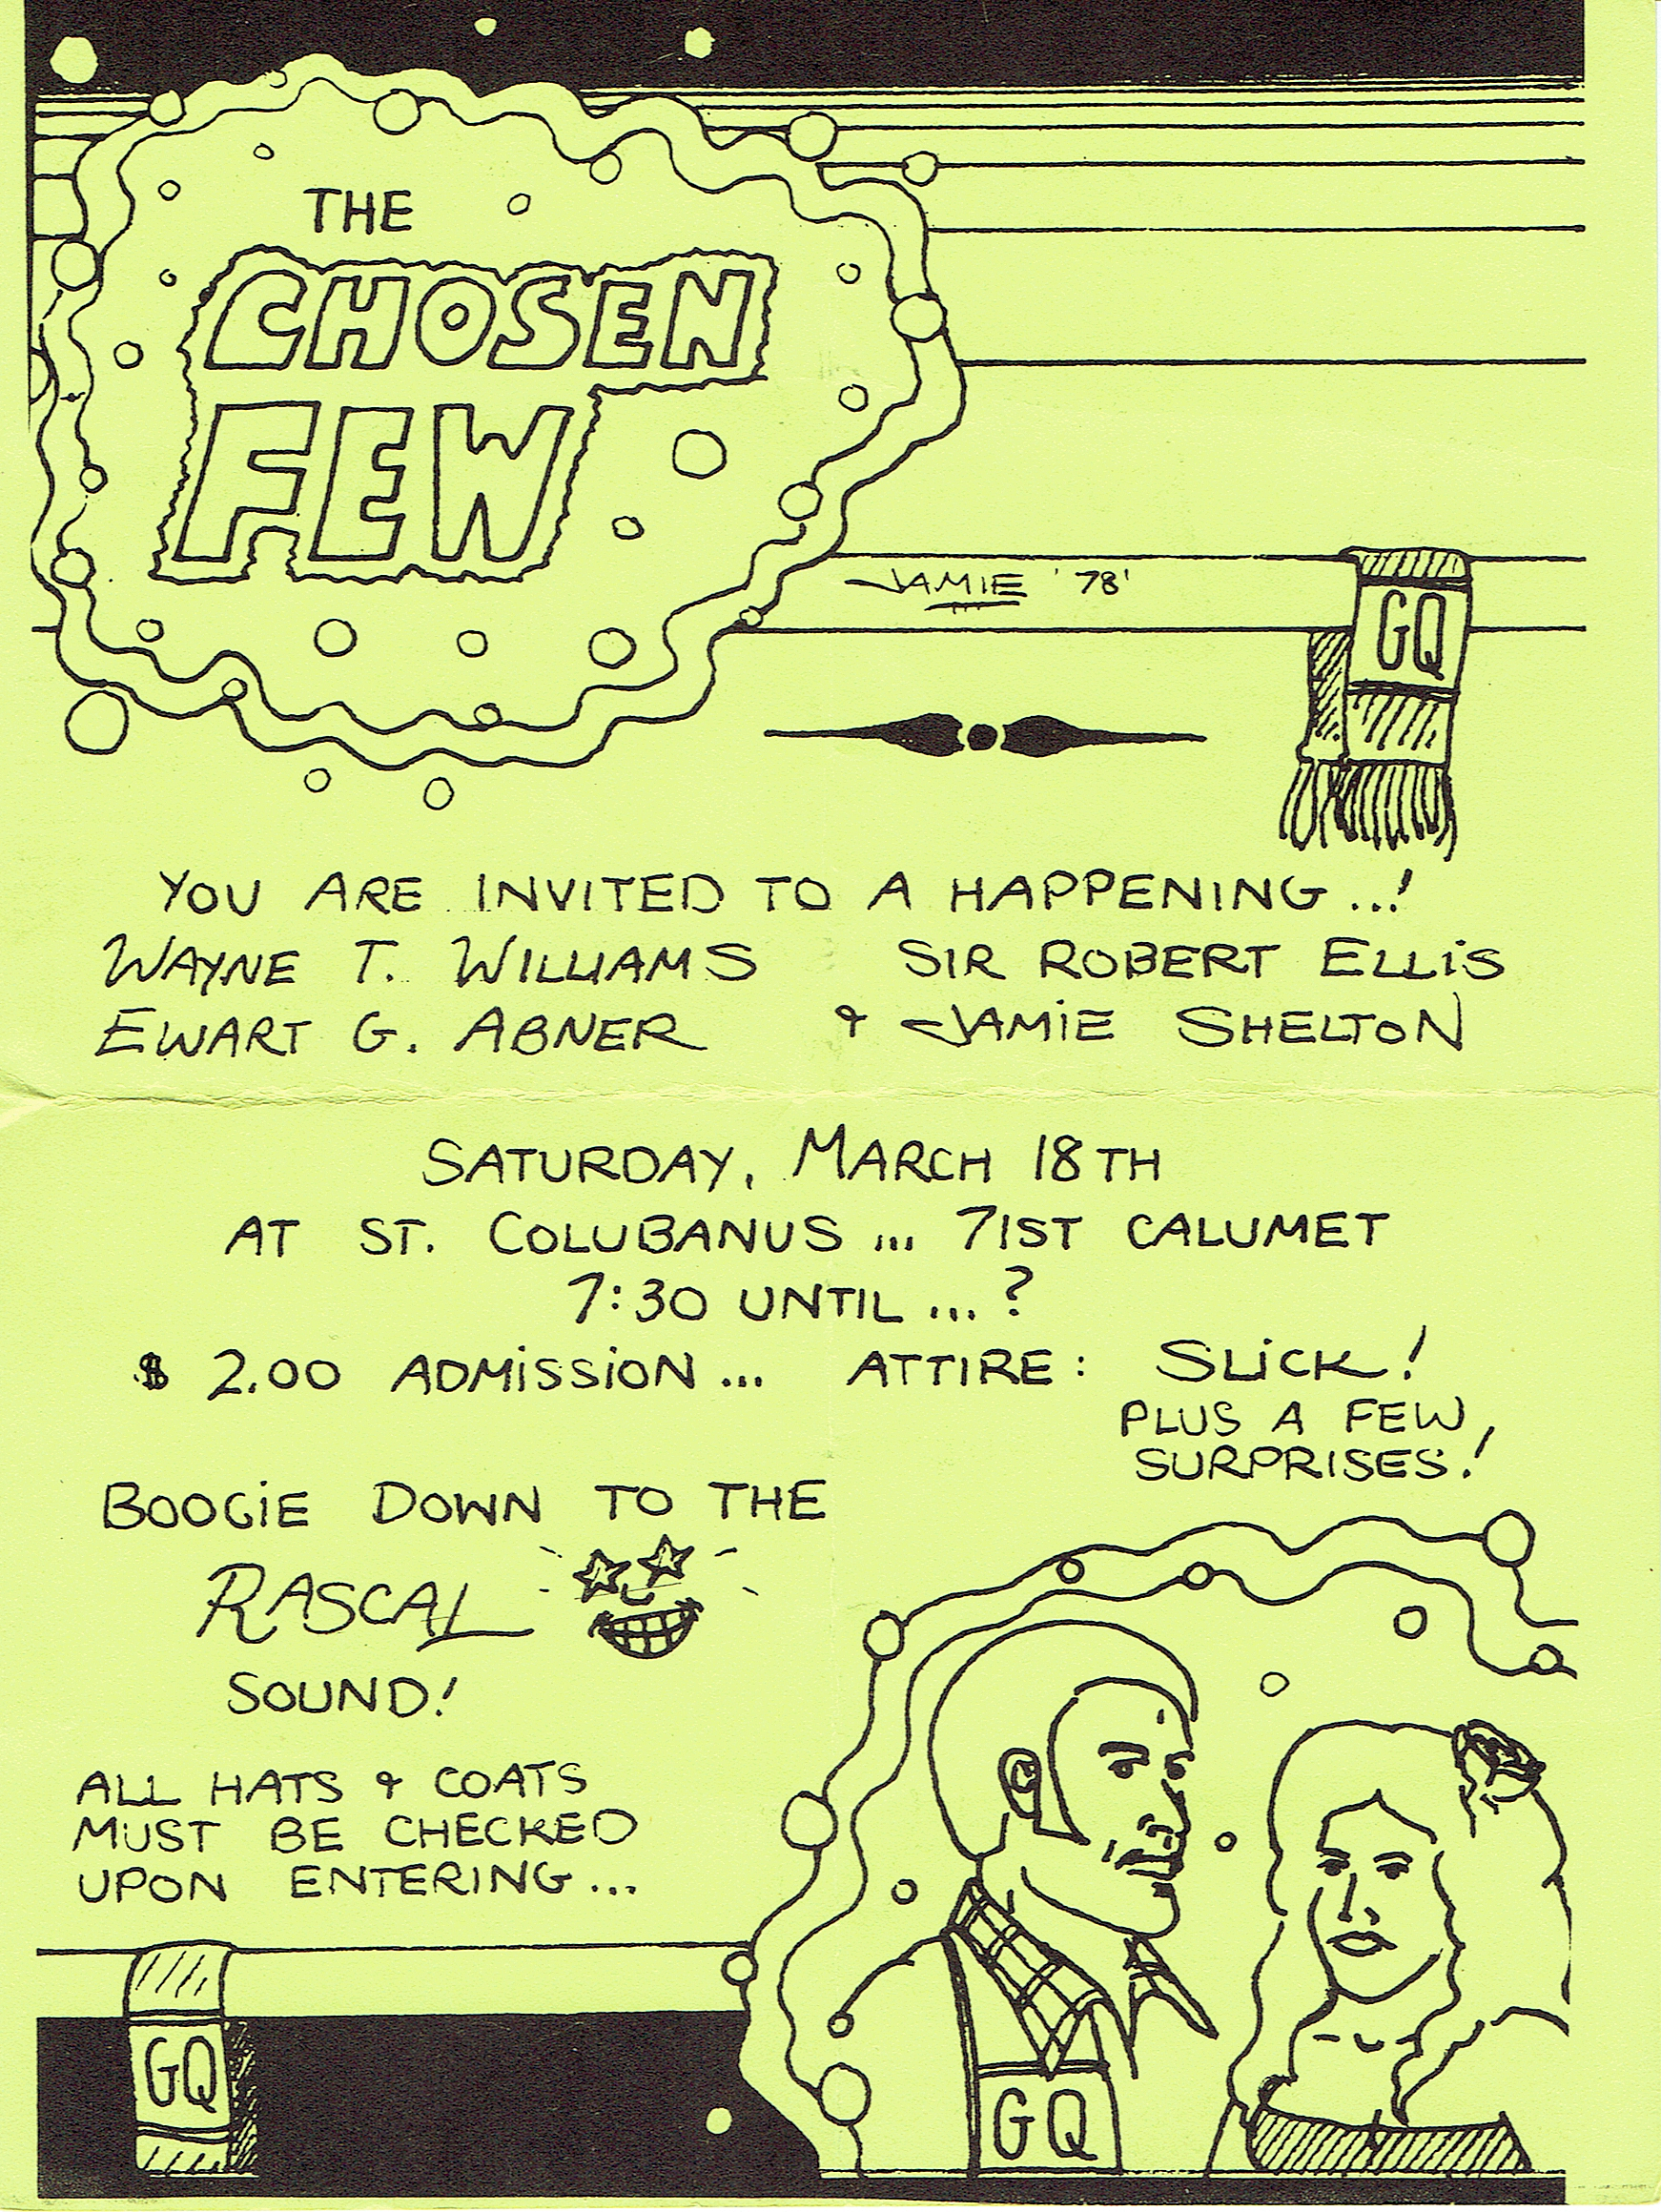 THE
CHOSEN
FEW
JAMIE '78'
GQ
YOU ARE INVITED TO A HAPPENING...!
WAYNE T. WILLIAMS SIR ROBERT ELLIS
EWART G. ABNER & JAMIE SHELTON
SATURDAY, MARCH 18TH
AT ST. COLUBANUS ... 71ST CALUMET
7:30 UNTIL ... ?
$ 2.00 ADMISSION ... ATTIRE: SLICK!
PLUS A FEW
SURPRISES!
BOOGIE DOWN TO THE
RASCAL
SOUND!
ALL HATS & COATS
MUST BE CHECKED
UPON ENTERING...
GQ
GQ